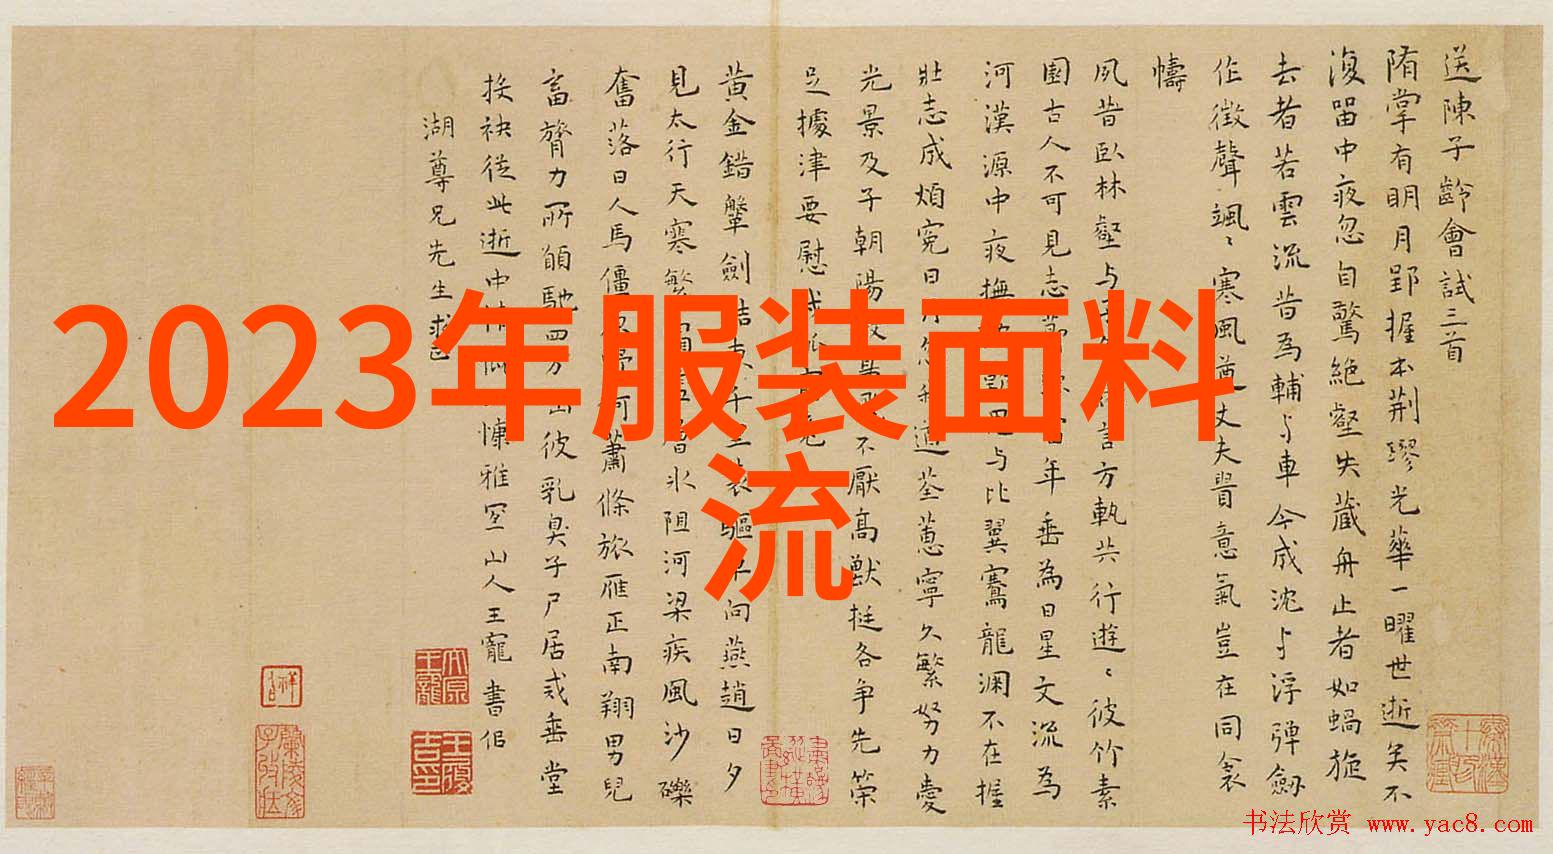 2023年服装面料
流
送陳子齡會試三首
隋掌有明月郢握本荆璆光華一曜世逝矣不
復留中夜忽自驚絶壑失藏舟止者如蝸旋
去者若雲流昔為輔与車今成沈与浮弹劔
作徵聲颯〻寒風遒丈夫嘗意氣豈在同衾
幬
夙昔臥林壑与言方執共行遊〻彼竹素
園古人不可見志年垂為日星文流為
河漢源中夜撫与比翼騫龍淵不在握
壯志成煩寃日適荃蕙寧久繁努力愛
光景及子朝陽不厭高獸挺各争先榮
足據津要慰
黄金錯鞶劍結裘驅向燕趙日夕
見太行天寒層氷阻河梁疾風沙礫
奮落日人馬僵何蕭條旅雁正南翔男兒
畜膂力所願馳四方彼乳臭子尸居或垂堂
接袂従此逝中慷雅宜山人王寵書似
湖尊兄先生求
书法欣赏 www.yac8.com